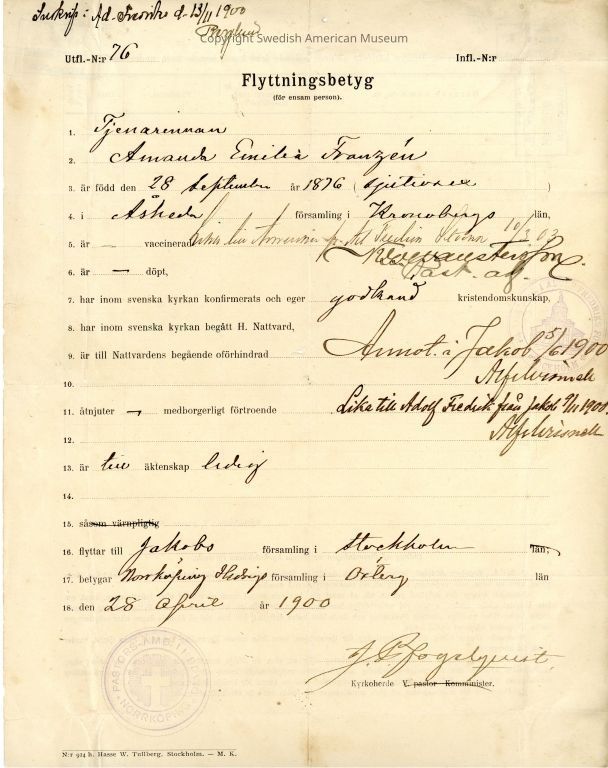 Inskrifs i Ad. Fredriks d. 13/11 1900
Berglund
Copyright Swedish American Museum
Utfl.-N:r 76 Infl.-N:r
Flyttningsbetyg
(för ensam person).
1. Tjenarinnan
2. Amanda Emilia Franzén
3. är född den 28 September år 1876 (sjutiosex
4. i Åsheda församling i Kronobergs län,
5. är — vaccinerad 10/3 03
6. är — döpt, Past. adj.
7. har inom svenska kyrkan konfirmerats och eger godkänd kristendomskunskap,
8. har inom svenska kyrkan begått H. Nattvard,
9. är till Nattvardens begående oförhindrad Annot. i Jakob 5/6 1900
10. Alf Grisnell
11. åtnjuter — medborgerligt förtroende Likså till Adolf Fredrik från Jakob 9/11 1900.
12.
13. är till äktenskap ledig
14.
15. såsom värnpligtig
16. flyttar till Jakobs församling i Stockholm län;
17. betygar Norrköping Hedvigs församling i Österg län
18. den 28 April år 1900
PASTORS-EMB. I HEDVIG
NORRKÖPING
Kyrkoherde V. pastor Komminister.
N:r 924 h. Hasse W. Tullberg. Stockholm. — M. K.